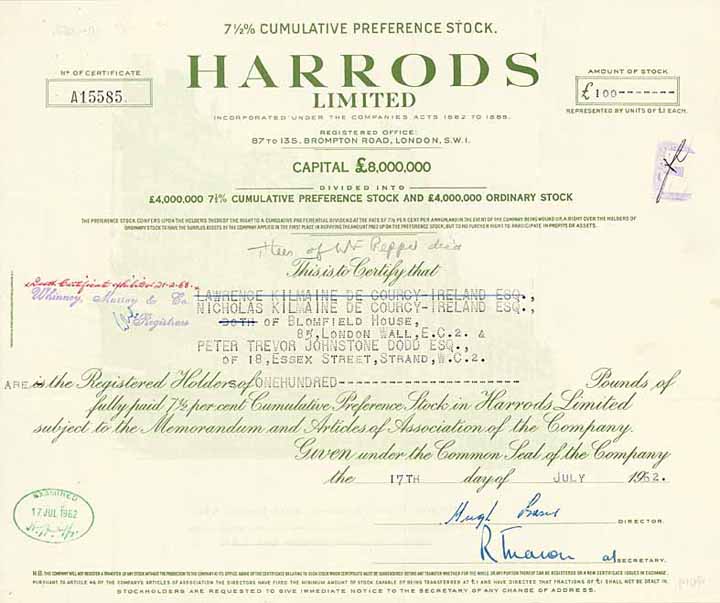 7½% CUMULATIVE PREFERENCE STOCK.
Nº OF CERTIFICATE
A15585.
HARRODS
LIMITED
AMOUNT OF STOCK
£100-------
REPRESENTED BY UNITS OF £1 EACH.
INCORPORATED UNDER THE COMPANIES ACTS 1862 TO 1886.
REGISTERED OFFICE:
87 TO 135, BROMPTON ROAD, LONDON, S.W.1.
CAPITAL £8,000,000
DIVIDED INTO
£4,000,000 7½% CUMULATIVE PREFERENCE STOCK AND £4,000,000 ORDINARY STOCK
THE PREFERENCE STOCK CONFERS UPON THE HOLDERS THEREOF THE RIGHT TO A CUMULATIVE PREFERENTIAL DIVIDEND AT THE RATE OF 7½ PER CENT PER ANNUM, AND IN THE EVENT OF THE COMPANY BEING WOUND UP A RIGHT OVER THE HOLDERS OF
ORDINARY STOCK TO HAVE THE SURPLUS ASSETS OF THE COMPANY APPLIED IN THE FIRST PLACE IN REPAYING THE AMOUNT PAID UP ON THE PREFERENCE STOCK, BUT TO NO FURTHER RIGHT TO PARTICIPATE IN PROFITS OR ASSETS.
This is to Certify that
Death Certificate Exhibited 21-2-68.
Whinney, Murray & Co.
Registrars
LAWRENCE KILMAINE DE COURCY-IRELAND ESQ.,
NICHOLAS KILMAINE DE COURCY-IRELAND ESQ.,
BOTH OF BLOMFIELD HOUSE,
85, LONDON WALL, E.C.2. &
PETER TREVOR JOHNSTONE DODD ESQ.,
OF 18, ESSEX STREET, STRAND, W.C.2.
ARE is the Registered Holders of ONEHUNDRED------------------------ Pounds of
fully paid 7½ per cent Cumulative Preference Stock in Harrods Limited
subject to the Memorandum and Articles of Association of the Company.
Given under the Common Seal of the Company
the 17TH day of JULY 1962.
EXAMINED
17 JUL 1962
Hugh Fraser
DIRECTOR.
SECRETARY.
N.B. THE COMPANY WILL NOT REGISTER A TRANSFER OF ANY STOCK WITHOUT THE PRODUCTION TO THE COMPANY AT ITS OFFICE
PURSUANT TO ARTICLE 46 OF THE COMPANY'S ARTICLES OF ASSOCIATION THE DIRECTORS HAVE FIXED THE MINIMUM AMOUNT OF STOCK CAPABLE OF BEING TRANSFERRED AT £1 AND HAVE DIRECTED THAT FRACTIONS OF £1 SHALL NOT BE DEALT IN.
STOCKHOLDERS ARE REQUESTED TO GIVE IMMEDIATE NOTICE TO THE SECRETARY OF ANY CHANGE OF ADDRESS.